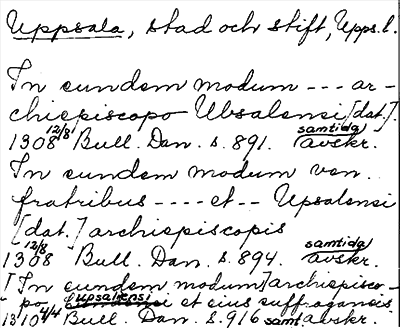 Uppsala, stad och stift, Upps. l.
In eundem modum --- ar-
chiepiscopo Ubsalensi [dat.].
1308 12/8 Bull. Dan. s. 891. samtida avskr.
In eundem modum ven.
fratribus ---- et -- Upsalensi
[dat.] archiepiscopis
1308 12/8 Bull. Dan. s. 894. samtida avskr.
[In eundem modum] archiepisco-
po upsalensi et eius suffraganeis
1310 4/4 Bull. Dan. s. 916 samt. avskr.